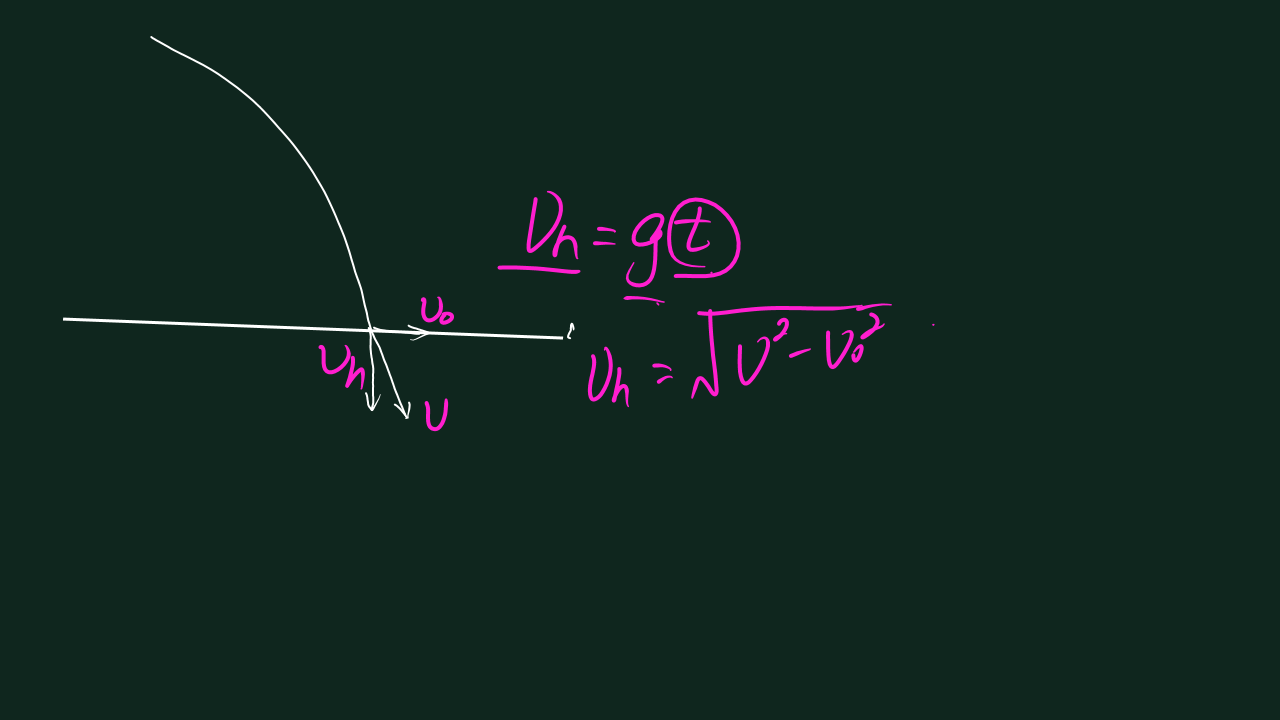 v₀
vₕ
v
vₕ = gt
vₕ = √v² - v₀²